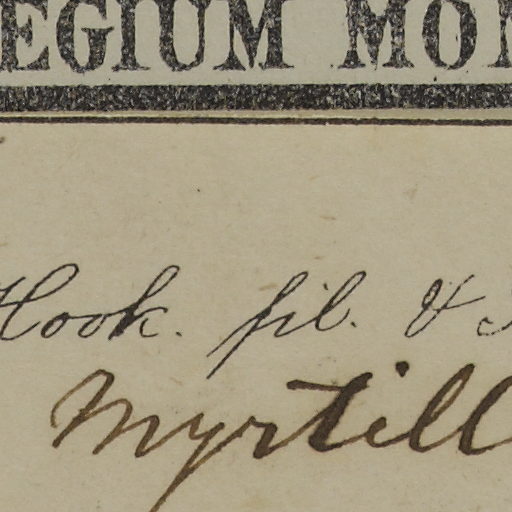 EGIUM MO
Hook. fil. &
Myrtill